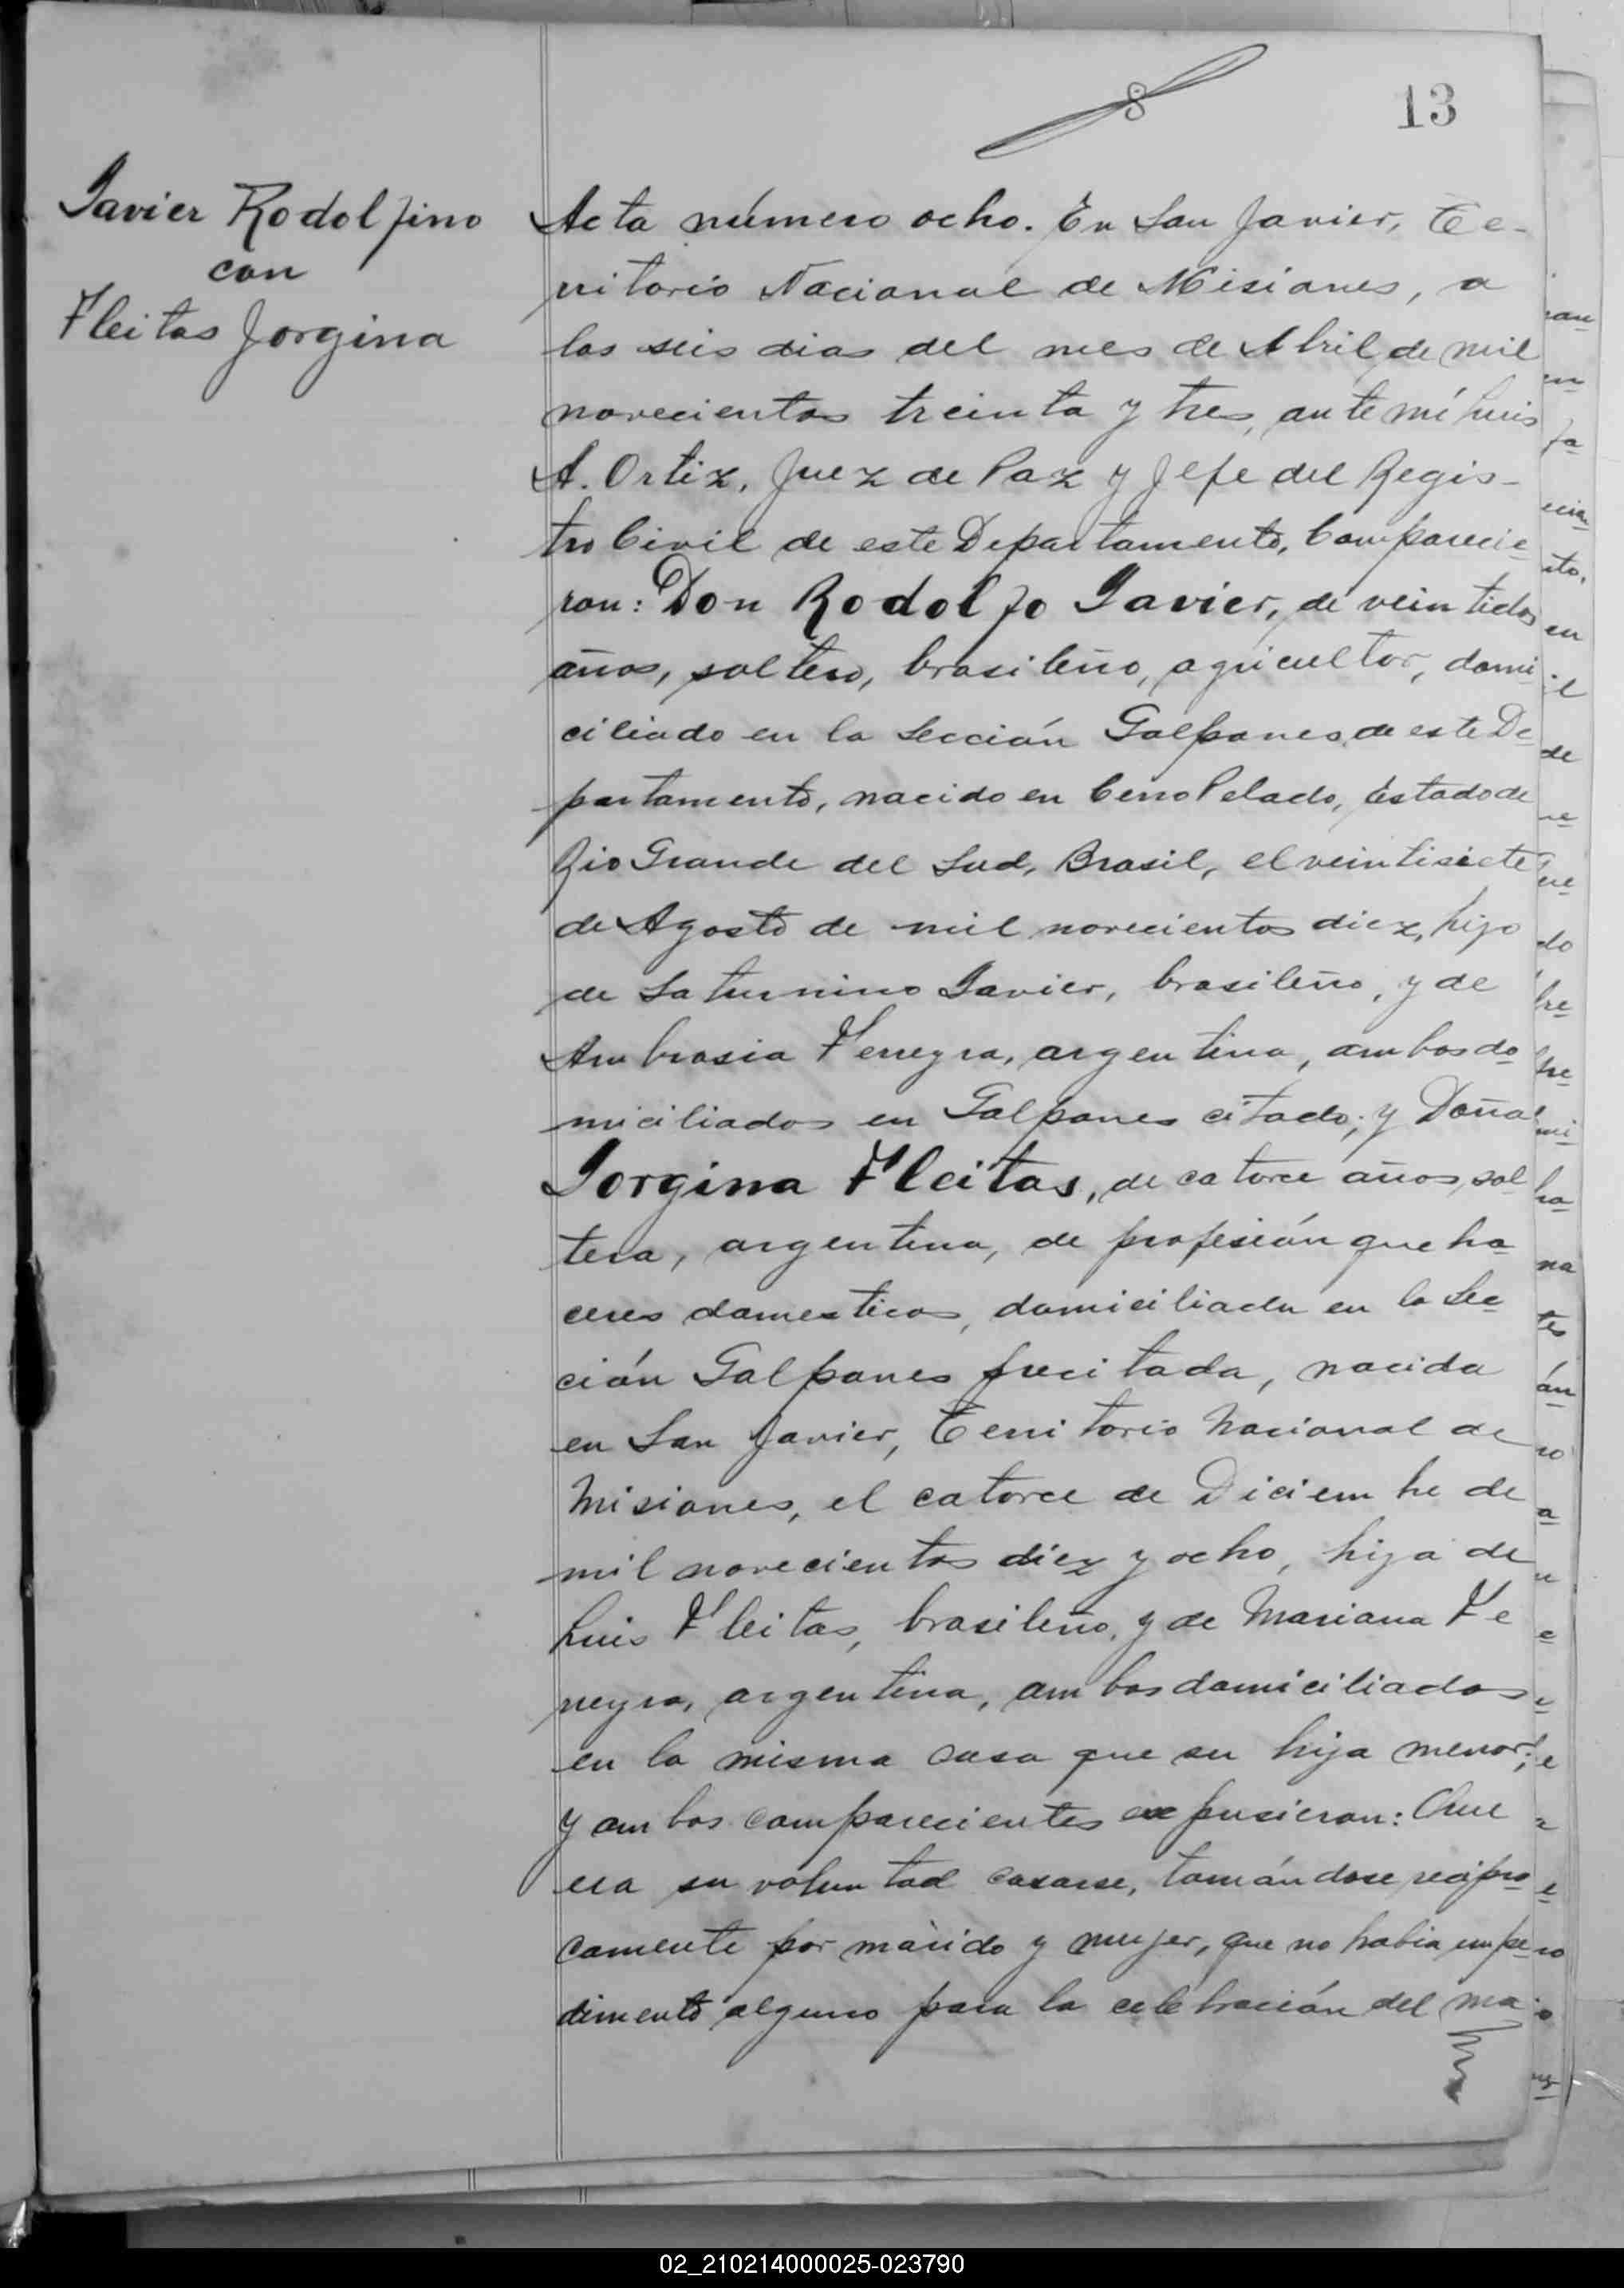 8
13
Javier Rodolfino
con
Fleitas Jorgina
Acta número ocho. En San Javier, Te-
rritorio Nacional de Misiones, a
los seis dias del mes de Abril de mil
novecientos treinta y tres, ante mí Luis
A. Ortiz, Juez de Paz y Jefe del Regis-
tro Civil de este Departamento, Comparecie
ron: Don Rodolfo Javier, de veintidos
años, soltero, brasileño, agricultor, domi
ciliado en la Sección Galpones de este De
partamento, nacido en Cerro Pelado, Estado de
Rio Grande del Sud, Brasil, el veintisiete
de Agosto de mil novecientos diez, hijo
de Saturnino Javier, brasileño, y de
Ambrosia Ferreyra, argentina, ambos do
miciliados en Galpones citado; y Doña
Jorgina Fleitas, de catorce años, sol
tera, argentina, de profesión queha
ceres domesticos, domiciliada en la Sec
ción Galpones precitada, nacida
en San Javier, Territorio Nacional de
Misiones, el catorce de Diciembre de
mil novecientos diez y ocho, hija de
Luis Fleitas, brasileño, y de Mariana Fe
rreyra, argentina, ambos domiciliados
en la misma casa que su hija menor;
y ambos comparecientes expusieron: Que
era su voluntad casarse, tomándose recípro
camente por marido y mujer, que no habia impe
dimento alguno para la celebración del ma
02_210214000025-023790